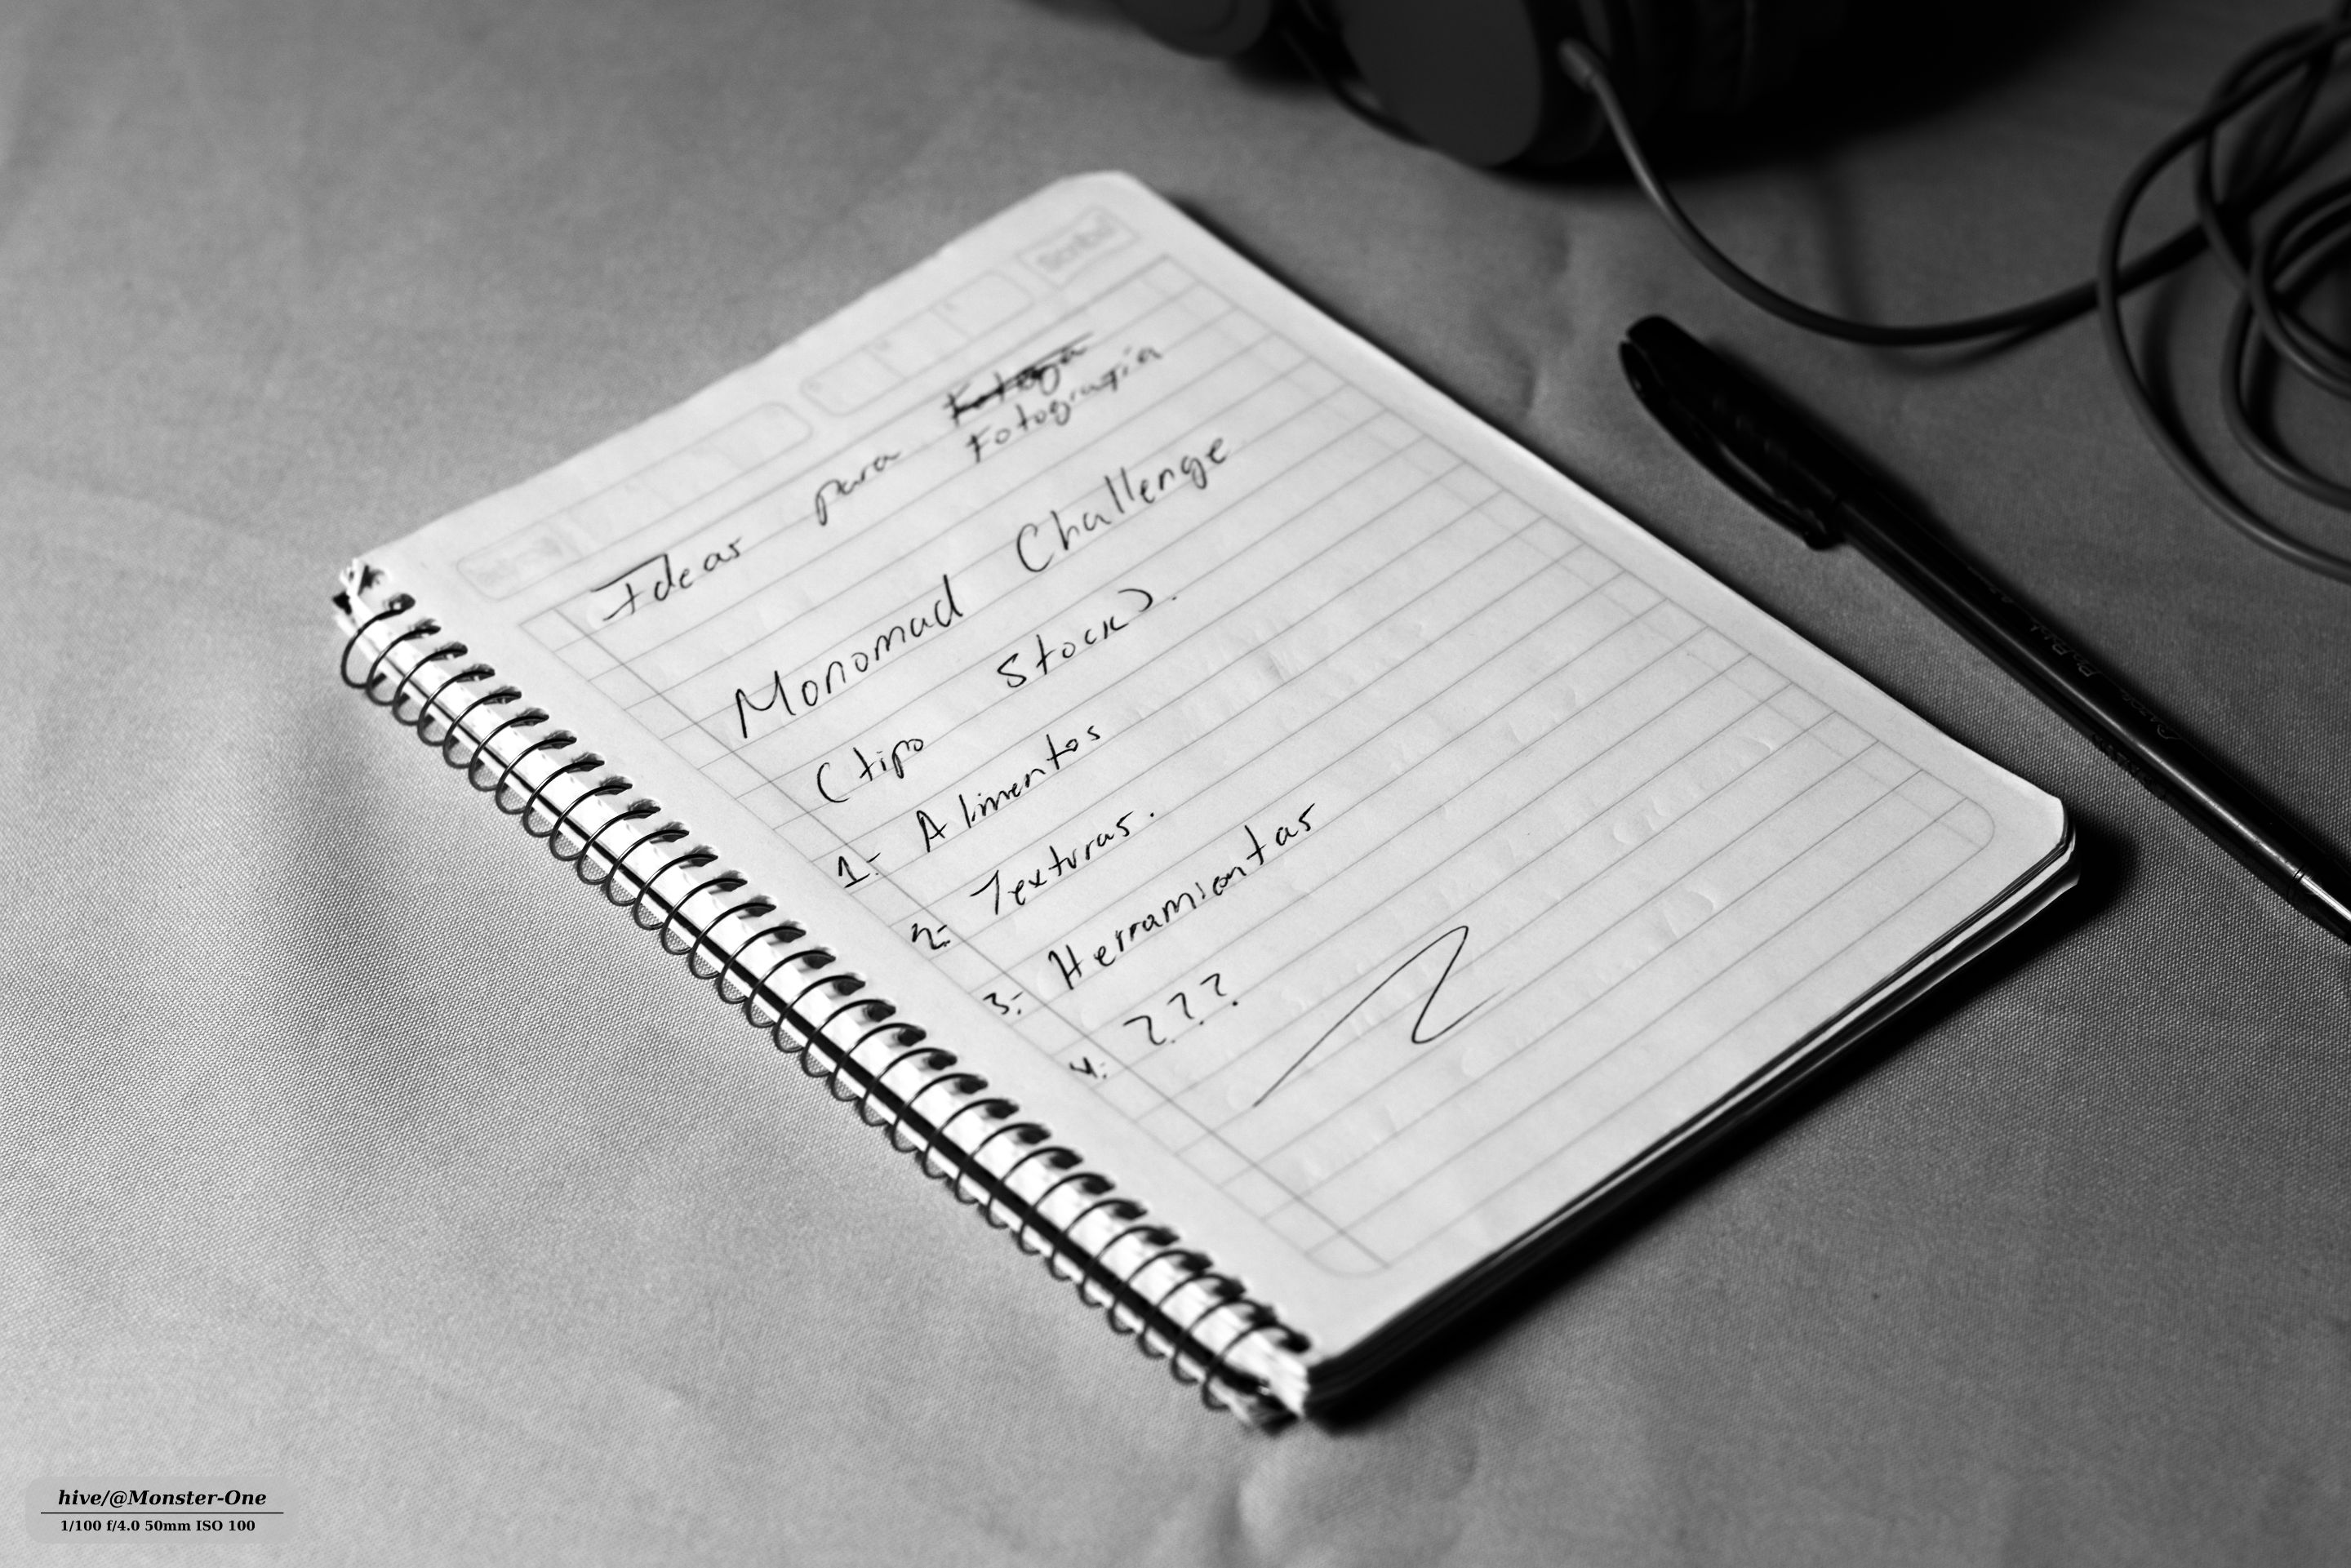 Scribe
Ideas para Fotografía
Monomad Challenge
(tipo stock).
1- Alimentos
2- Texturas.
3- Herramientas
4- ???
hive/@Monster-One
1/100 f/4.0 50mm ISO 100